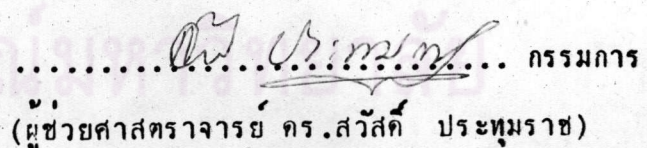 ........................................ กรรมการ
(ผู้ช่วยศาสตราจารย์ ดร.สวัสดิ์ ประทุมราช)